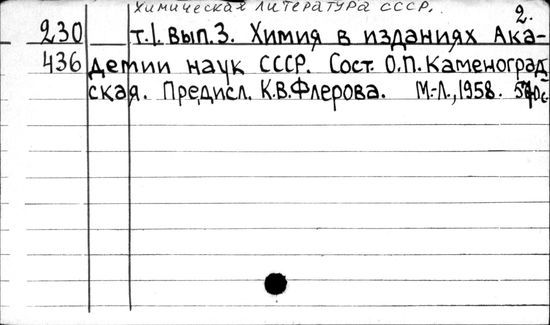 химическая литература СССР.
2.
230 т.1. вып.3. Химия в изданиях Ака-
436 демии наук СССР. Сост. О.П.Каменоград-
ская. Предисл. К.В.Флерова. М.-Л., 1958.